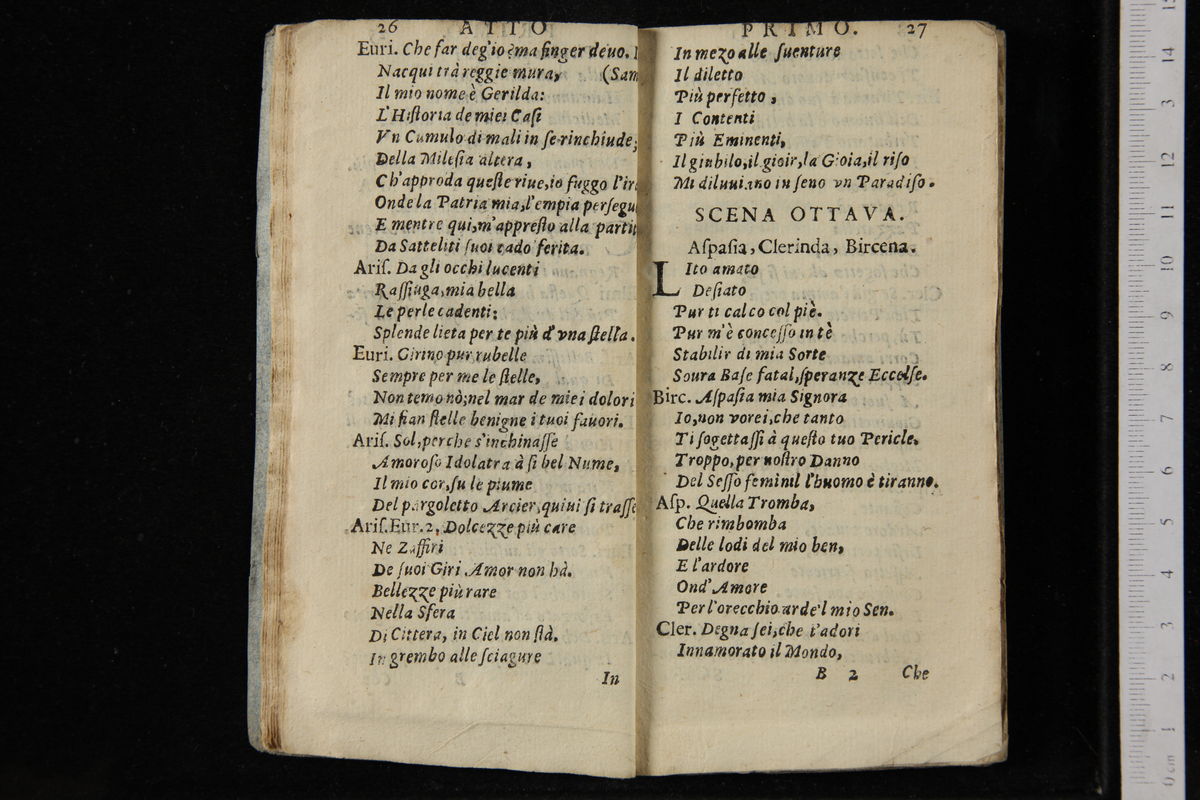 26 ATTO
Euri. Che far deg'io è ma finger deuo.
Nacqui trà reggie mura, (Sam
Il mio nome è Gerilda:
L'Historia de miei Casi
Vn Cumulo di mali in se rinchiude;
Della Milesia altera,
Ch'approda queste riue, io fuggo l'ire
Onde la Patria mia, l'empia persegu
E mentre qui, m'appresto alla partit
Da Satteliti suoi cado ferita.
Aris. Da gli occhi lucenti
Rassiuga, mia bella
Le perle cadenti:
Splende lieta per te più d'vna stella.
Euri. Girino pur rubelle
Sempre per me le stelle,
Non temo nò; nel mar de miei dolori
Mi fian stelle benigne i tuoi fauori.
Aris. Sol, perche s'inchinasse
Amoroso Idolatra à si bel Nume,
Il mio cor, su le piume
Del pargoletto Arcier, quiui si trasse
Aris. Eur. 2, Dolcezze più care
Ne Zaffiri
De suoi Giri Amor non hà.
Bellezze più rare
Nella Sfera
Di Cittera, in Ciel non stà.
In grembo alle sciagure
In
PRIMO. 27
In mezo alle suenture
Il diletto
Più perfetto,
I Contenti
Più Eminenti,
Il giubilo, il gioir, la Gioia, il riso
Mi diluuiano in seno vn Paradiso.
SCENA OTTAVA.
Aspasia, Clerinda, Bircena.
LIto amato
Desiato
Pur ti calco col piè.
Pur m'è concesso in tè
Stabilir di mia Sorte
Soura Base fatal, speranze Eccelse.
Birc. Aspasia mia Signora
Io, non vorei, che tanto
Ti sogettassi à questo tuo Pericle.
Troppo, per nostro Danno
Del Sesso feminil l'huomo è tiranno.
Asp. Quella Tromba,
Che rimbomba
Delle lodi del mio ben,
E l'ardore
Ond'Amore
Per l'orecchio arde'l mio Sen.
Cler. Degna sei, che t'adori
Innamorato il Mondo,
B 2 Che